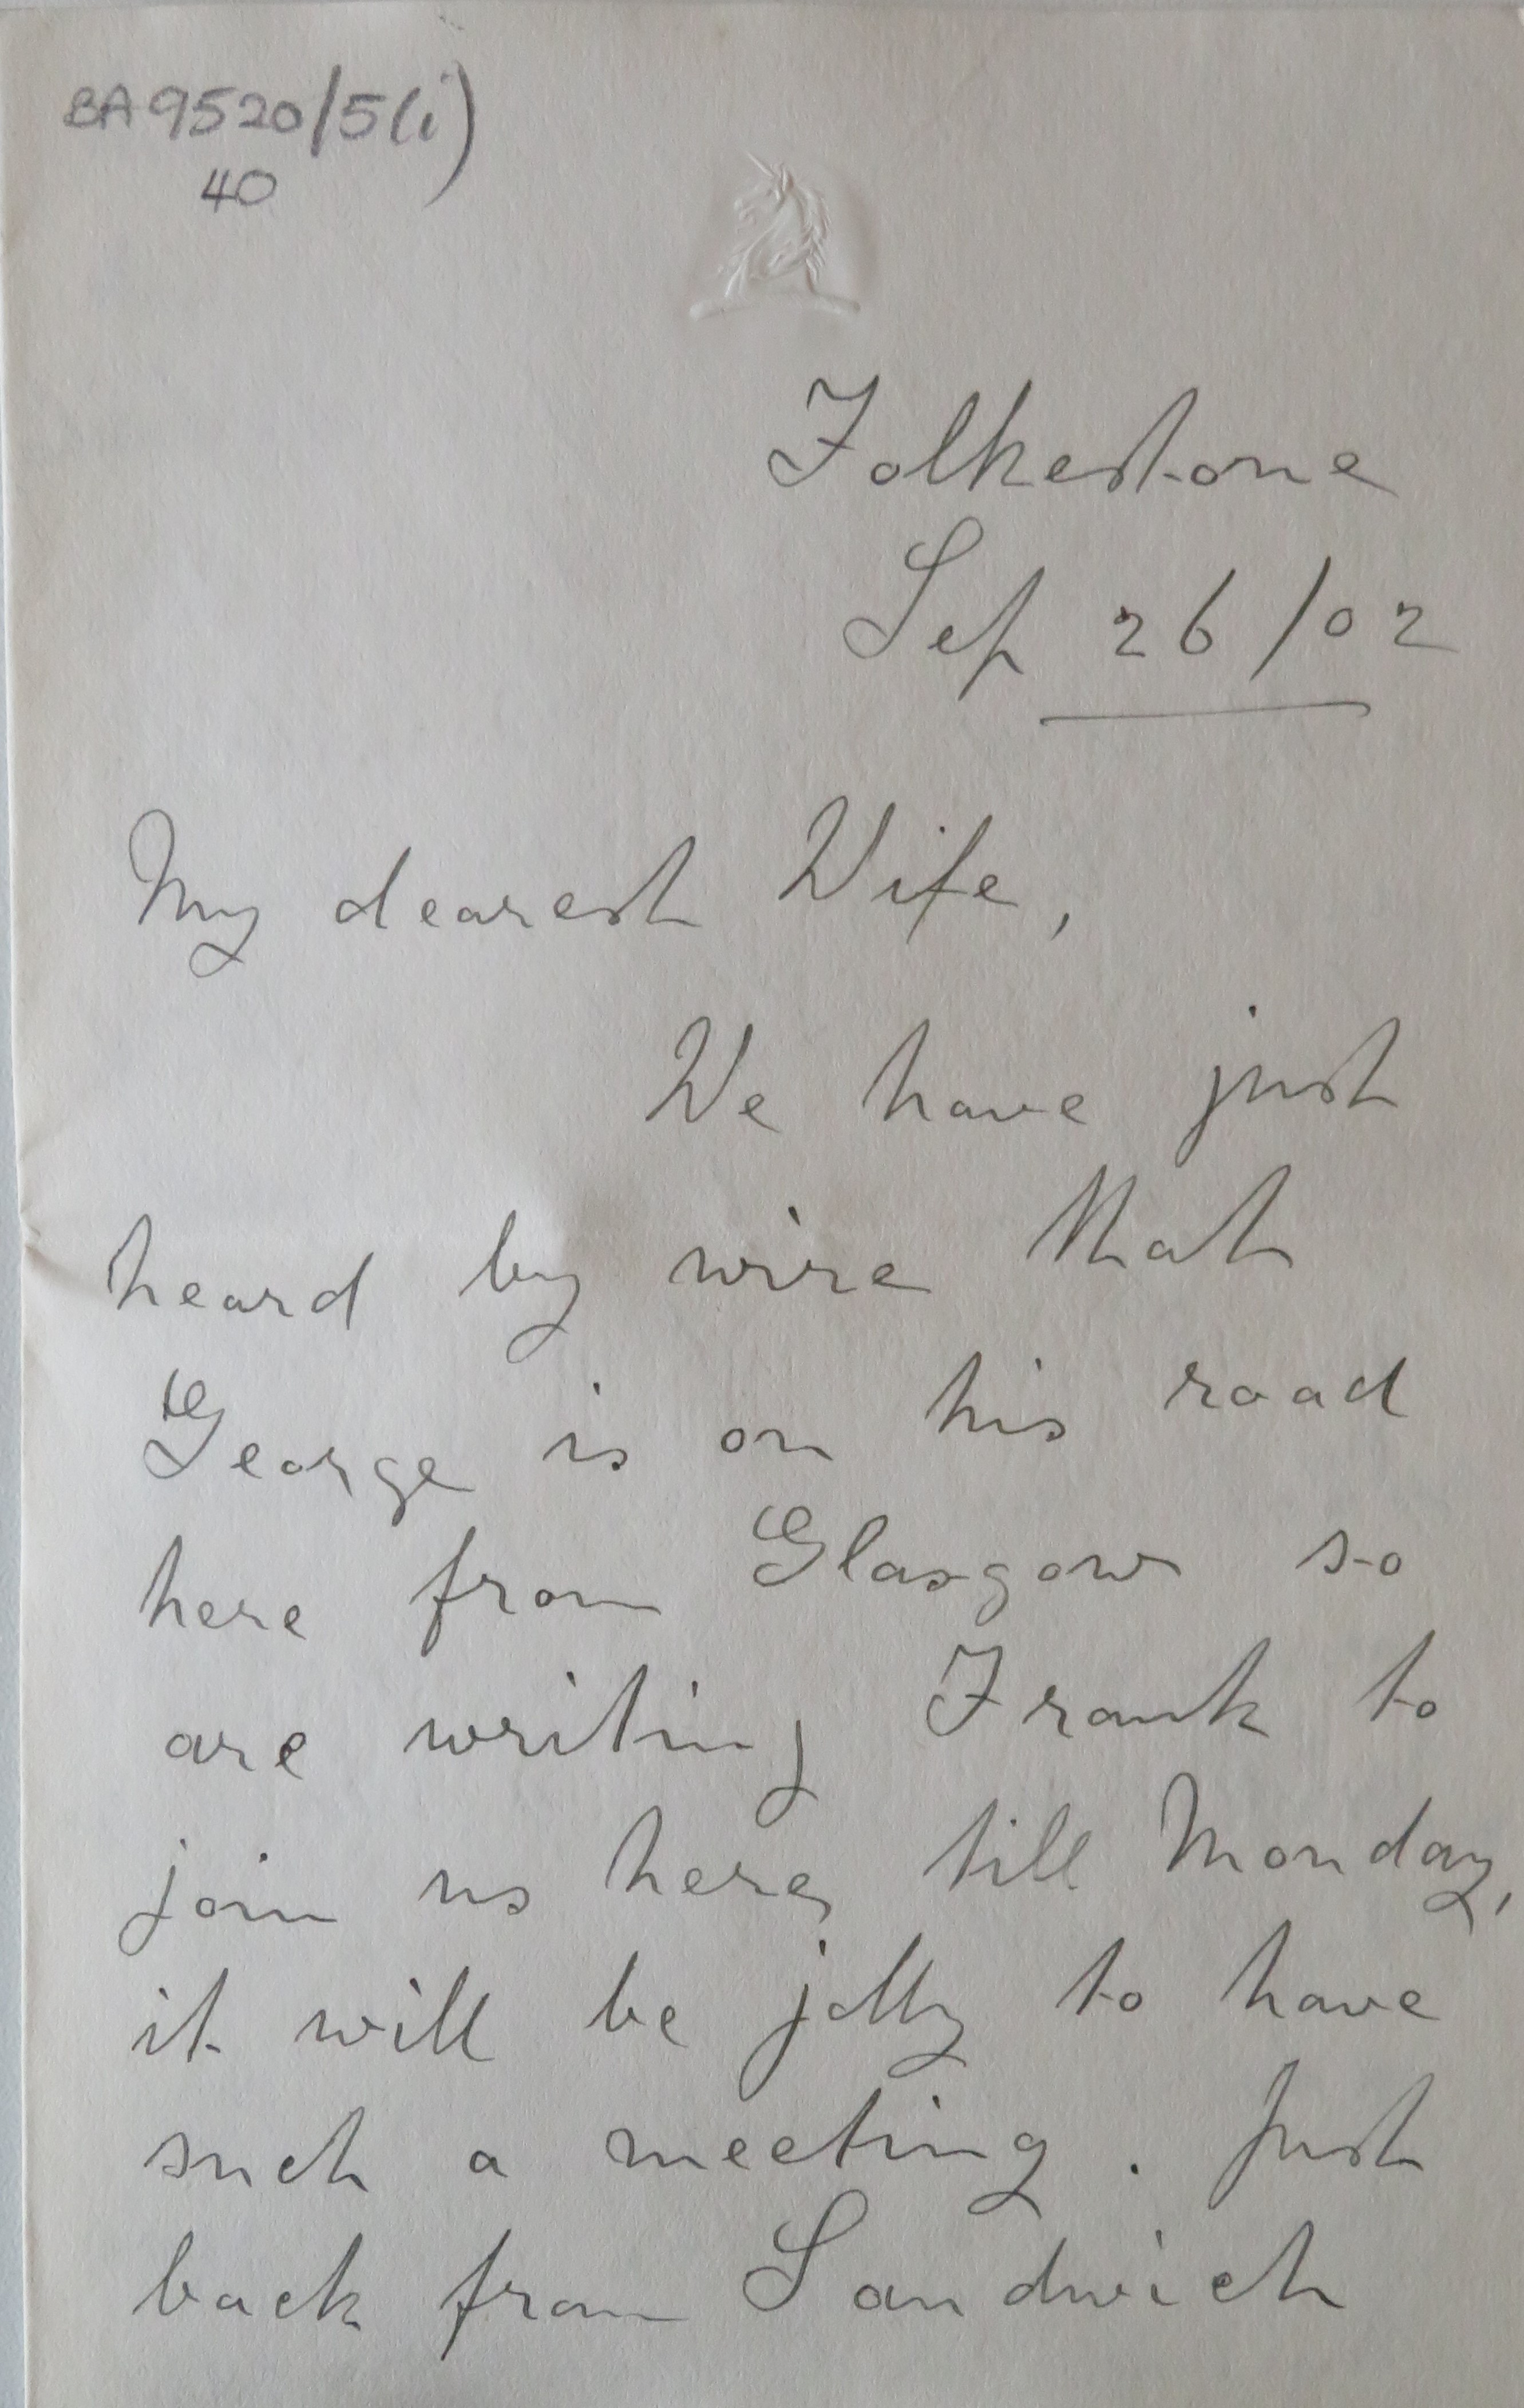 BA9520/5(i)
40
Folkestone
Sep 26/02
My dearest Wife,
We have just
heard by wire that
George is on his road
here from Glasgow so
are writing Frank to
join us here, till Monday,
it will be jolly to have
such a meeting. Just
back from Sandwich